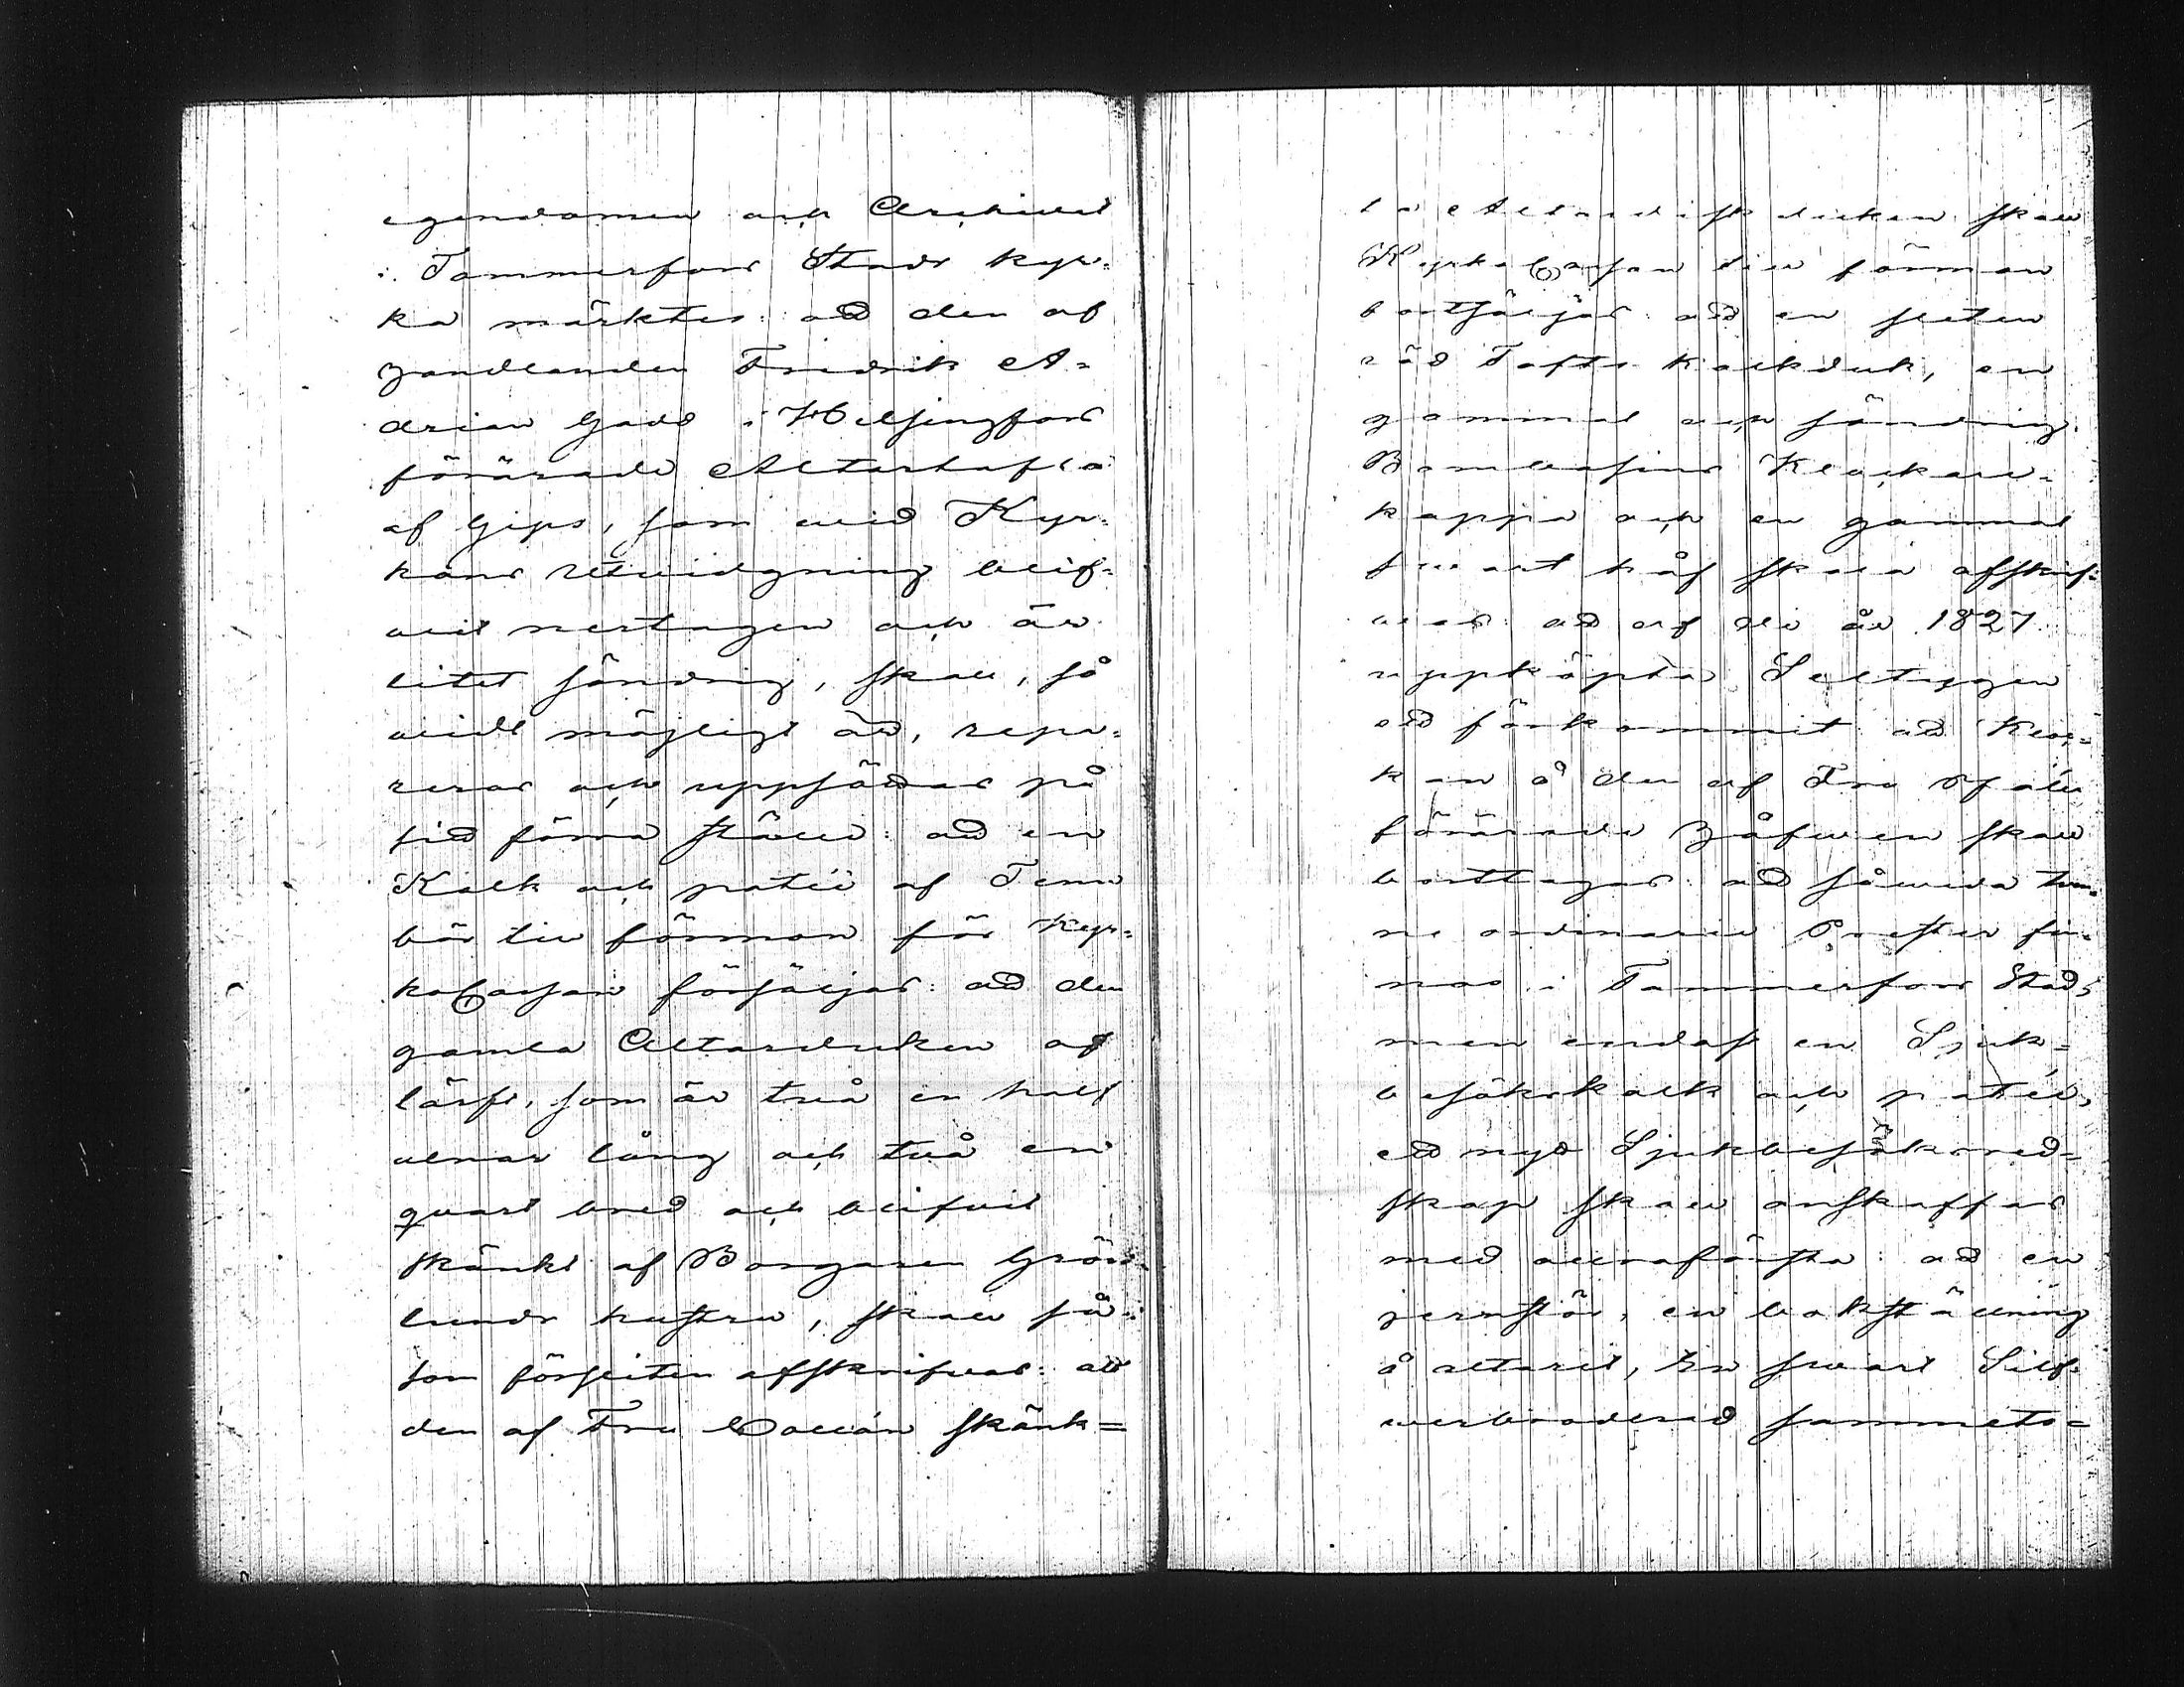 egendomen och Archivet
i Tammerfors Stads kyr=
ka märktes: att den af
Handlanden Fredrik A=
drian Gadd i Helsingfors
förärade Altartafla
af Gips, som vid Kyr=
kans utvidgning blif=
vit nertagen och är
litet söndrig, skall, så
vidt möjligt är, repa=
reras och uppsättas på
sitt förra ställe: att en
Kalk och patén af Tenn
bör till förmon för Kyr=
koCassan försäljas: att den
gamla Altarduken af
lärft, som är två en half
alnar lång och två en
quart bred och blifvit
skänkt af Borgaren Grön=
lunds hustru, skall så=
som försliten afskrifvas: att
den af Fru skänk=
ta Altardisk duken skall
KyrkoCassan till förmon
bortsäljas: att en sliten
röd Tafts kalkduk, en
gammal och söndrig
Bombasins Klockare=
kappa och en gammal
svart håf skola afskrif=
vas: att af de år 1827
uppköpta Seltygen
ett förkommit: att kläc=
kan å den af Fru
förärade Håfven skall
borttagas: att såvida tven=
ne ordinarie Prester fin=
nas i Tammerfors Stad,
men endast en Sjuk=
besökskalk och patén,
ett nytt Sjukbesöksred=
skap skall anskaffas
med aldraförsta: att en
jernstör, en bokställning
å altaret, En svart Silf=
verbroderad sammets=